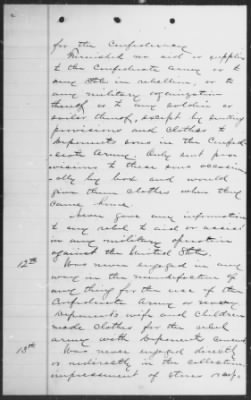 for the Confederacy
Furnished no aid or supplies
to the Confederate Army or to
any State in rebellion, or to
any military organization
thereof or to any soldier or
sailor thereof, except by sending
provisions and clothes to
deponents sons in the Confed-
erate Army. Only sent pro-
visions to these sons occasion-
ally by box and would
give them clothes when they
came home.
Never gave any information
to any rebel to aid or assist
in any military operation
against the United States.
12th Was never engaged in any
way in the manufacture of
any thing for the use of the
Confederate Army or
Deponents wife and children
made clothes for the rebel
army with deponents
13th Was never engaged directly
or indirectly in the collection
impressment of stores